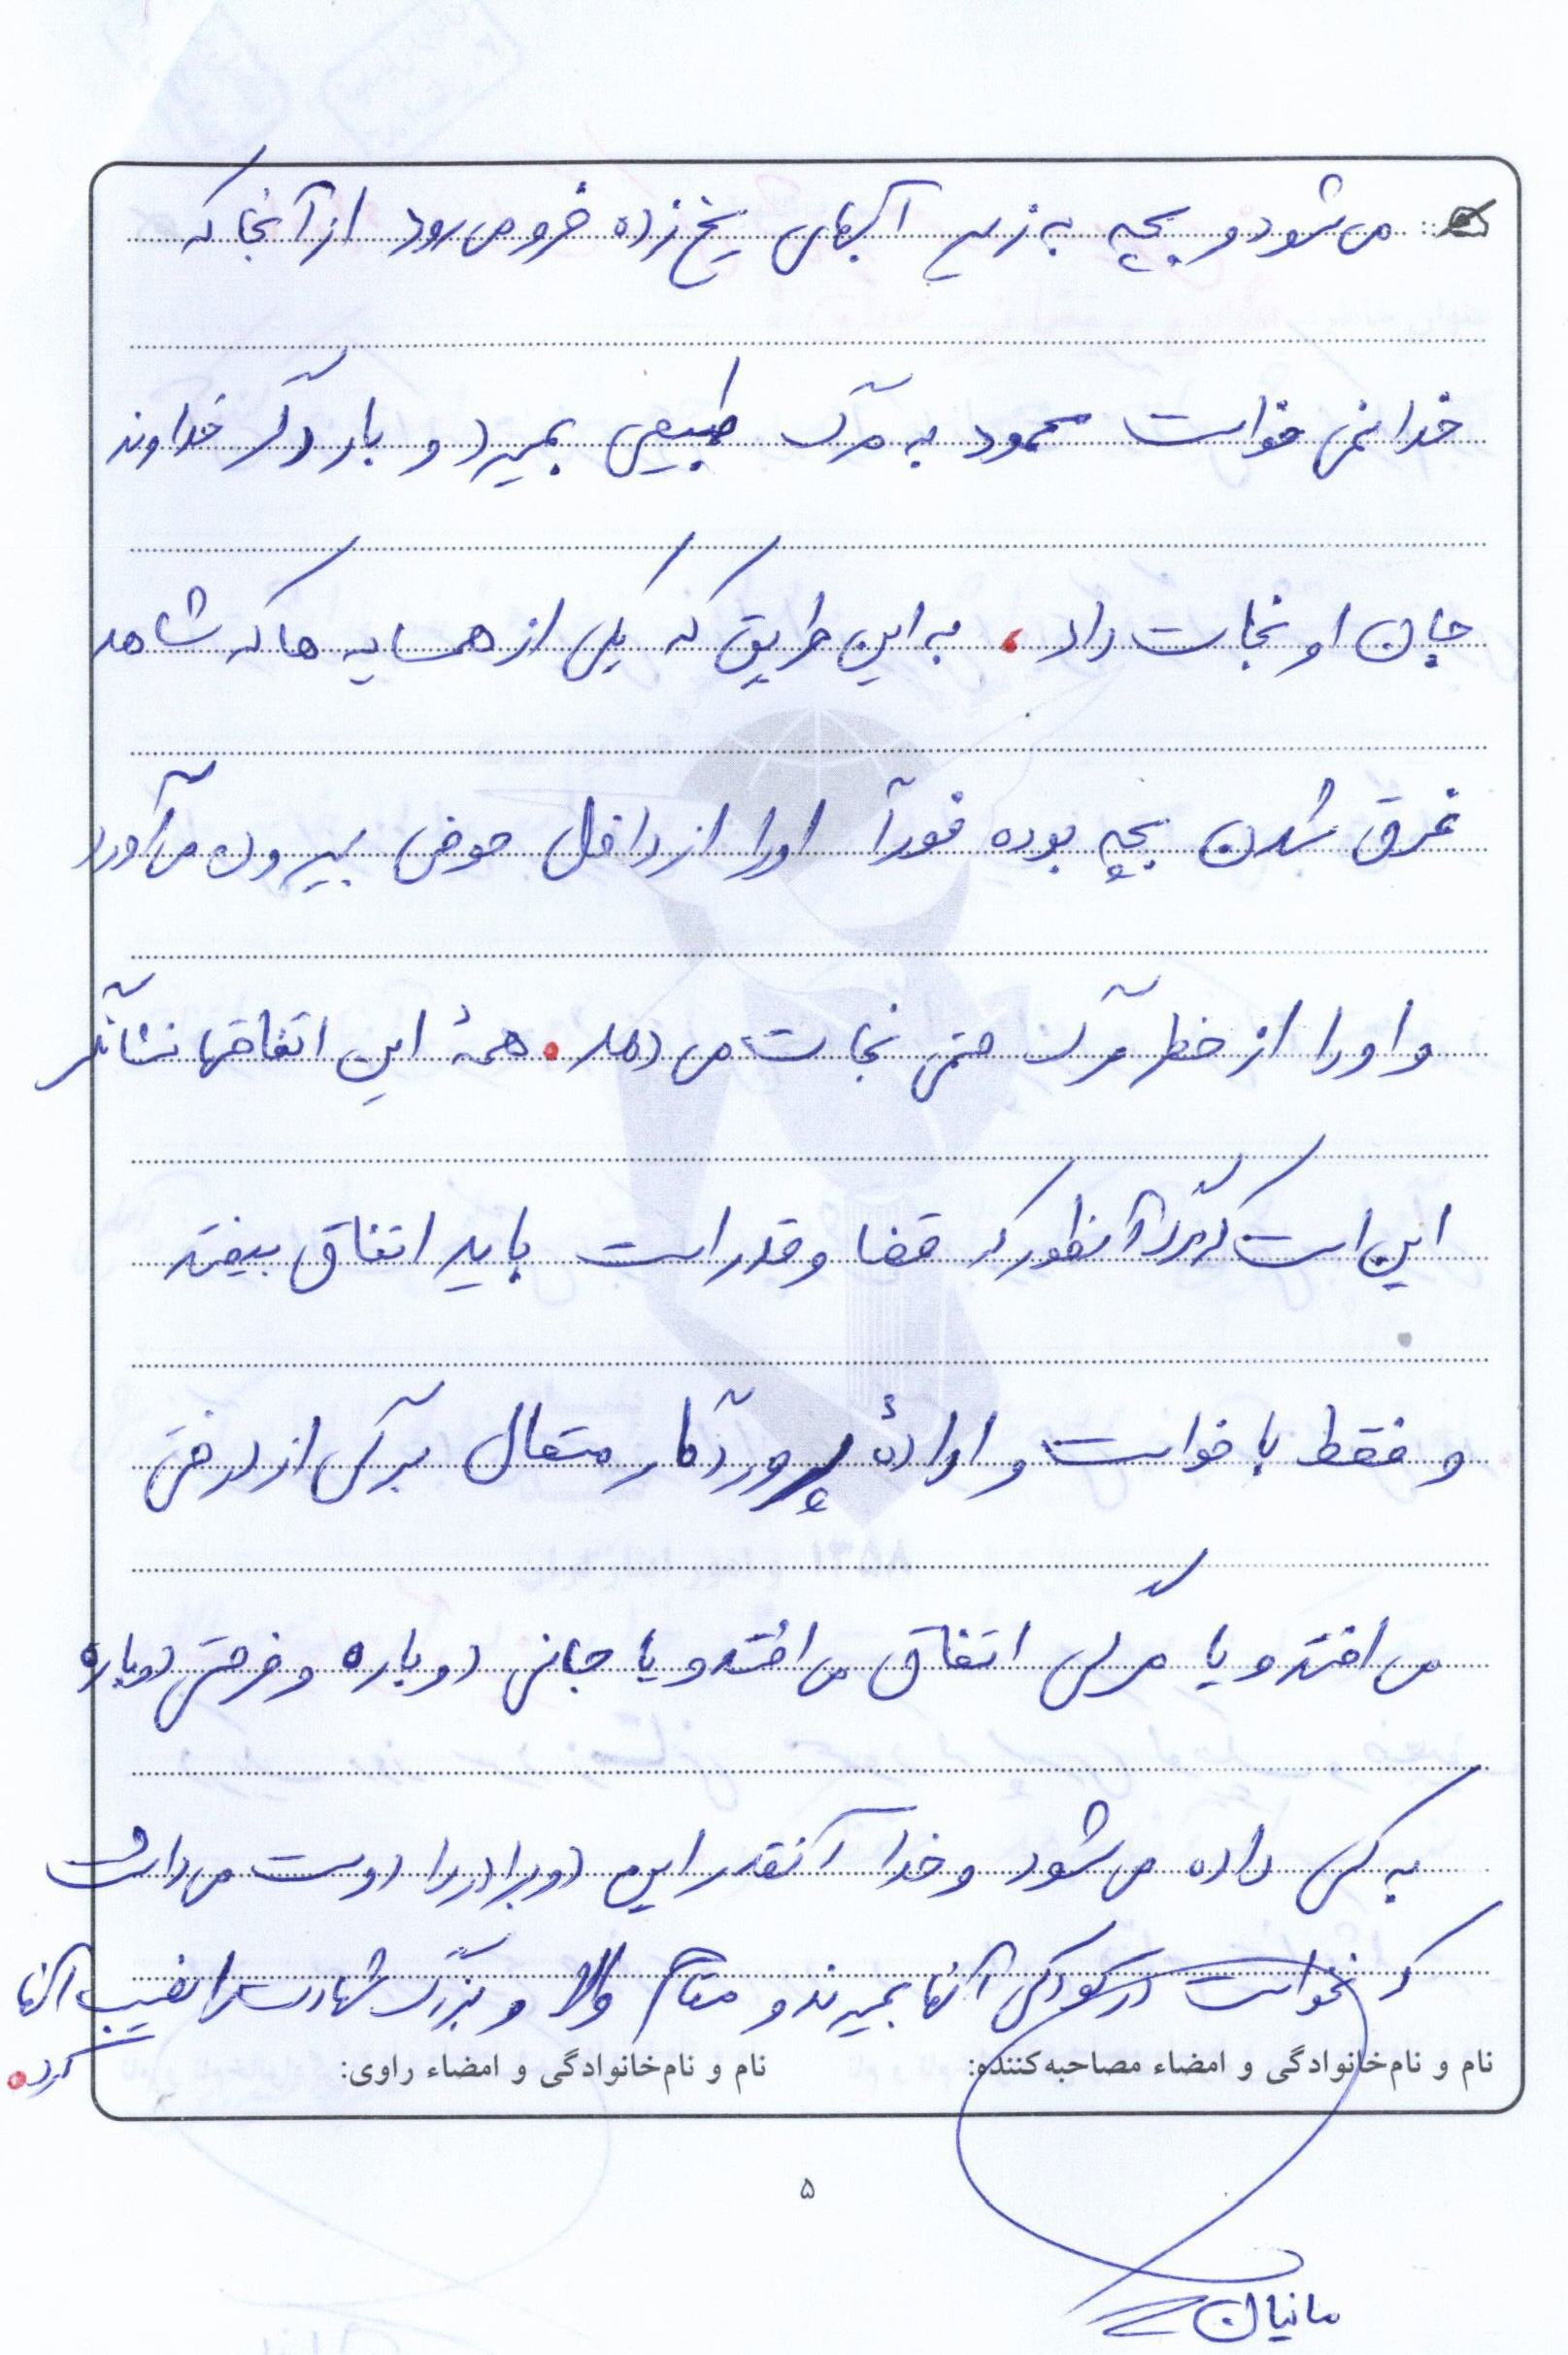 می‌شود و بچه به زیر آبهای یخ زده فرو می‌رود از آنجا که
خدا نمی خواست محمود به مرگ طبیعی بمیرد و بار دگر خداوند
جان او نجات داد، به این طریق که یکی از همسایه ها که شاهد
غرق شدن بچه بوده فوراً او را از داخل حوض بیرون می‌آورد
و او را از خطر مرگ حتمی نجات می دهد. همهٔ این اتفاقها نشانگر
این است که آنطور که قضا و قدر است باید اتفاق بیفتد
و فقط با خواست و ارادهٔ پروردگار متعال برگی از درختی
می افتد و یا مرگی اتفاق می افتد و یا جانی دوباره و فرصتی دوباره
به کسی داده می‌شود و خدا آنقدر این دو برادر را دوست می‌داشت
که نخواست در کودکی آنها بمیرند و مقام والا و بزرگ شهادت را نصیب آنها
کرد.
نام و نام‌خانوادگی و امضاء مصاحبه‌کننده: نام و نام‌خانوادگی و امضاء راوی:
۵
مانیان